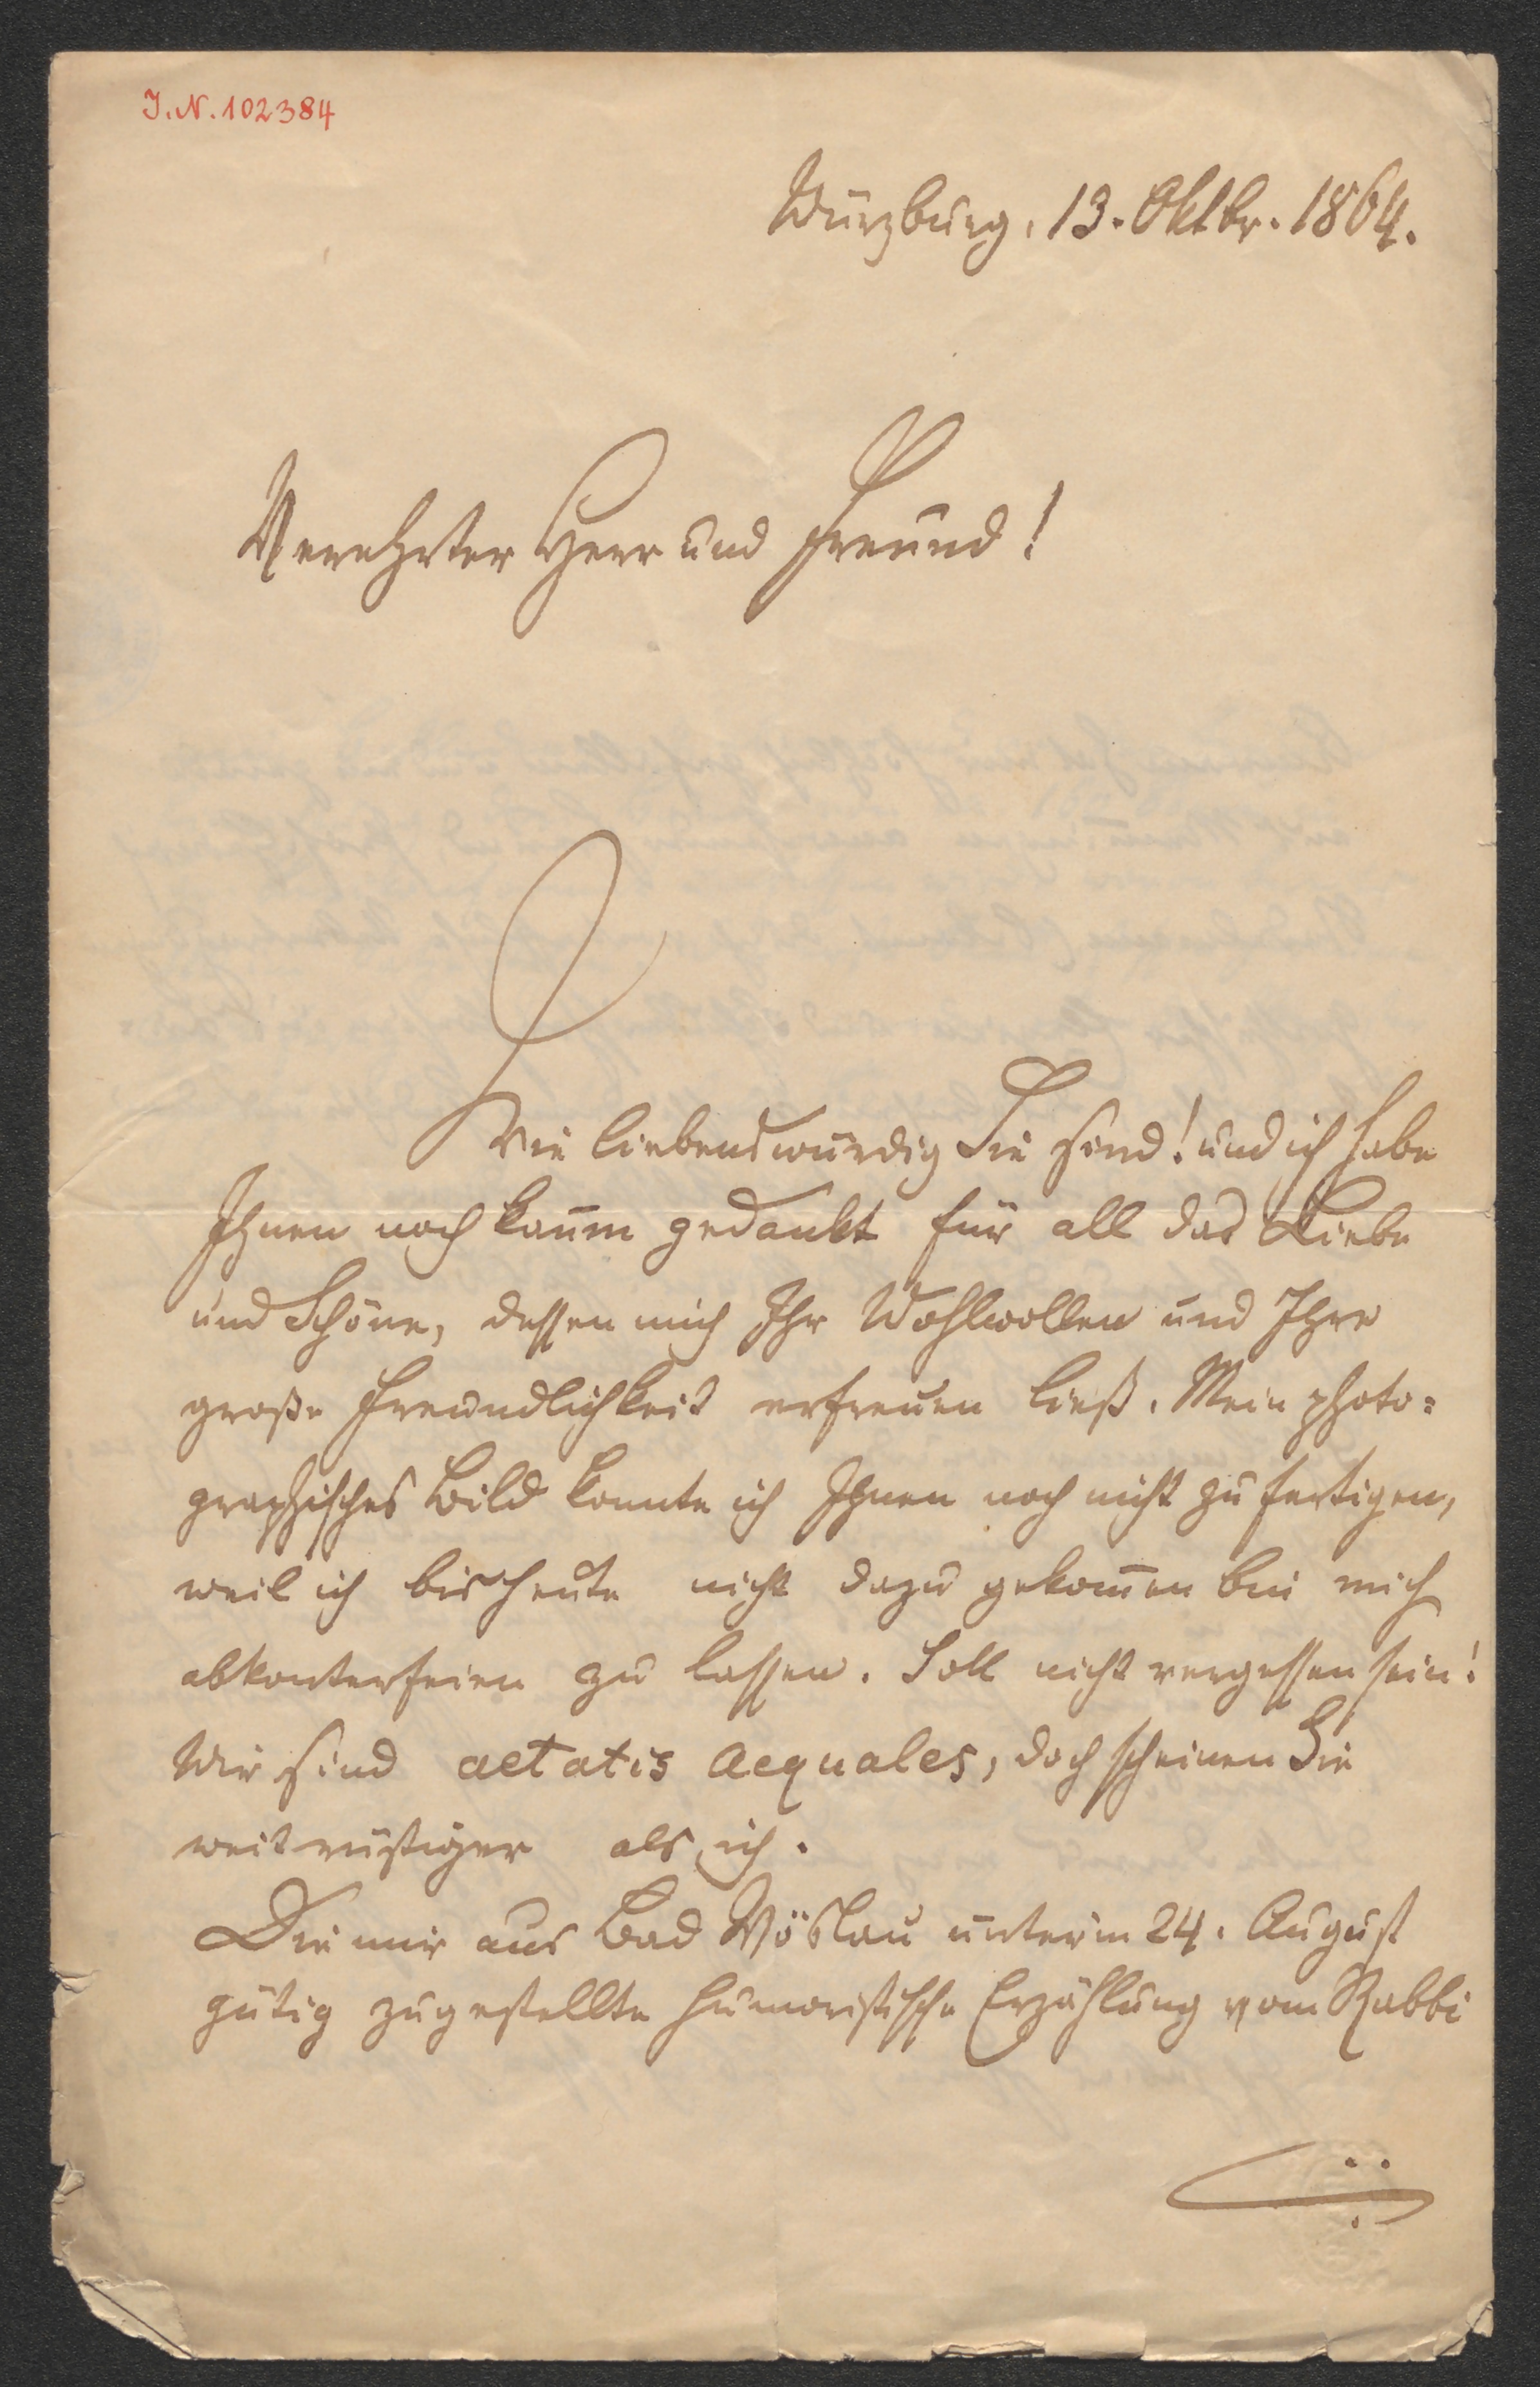 J. N. 102384
Würzburg, 13. Oktbr. 1864.
Verehrter Herr und Freund!
Wie liebenswürdig Sie sind! und ich habe
Ihnen noch kaum gedankt für all das Liebe
und Schöne, dessen mich Ihr Wohlwollen und Ihre
große Freundlichkeit erfreuen ließ. Mein photo=
graphisches Bild konnte ich Ihnen noch nicht zufertigen,
weil ich bis heute nicht dazu gekom̅en bin mich
abkonterfeien zu lassen. Soll nicht vergessen sein!
Wir sind aetatis aequales, doch scheinen Sie
weit rüstiger als ich.
Die mir aus Bad Vöslau unterm 24. August
gütig zugestellte humoristische Erzählung vom Rabbi